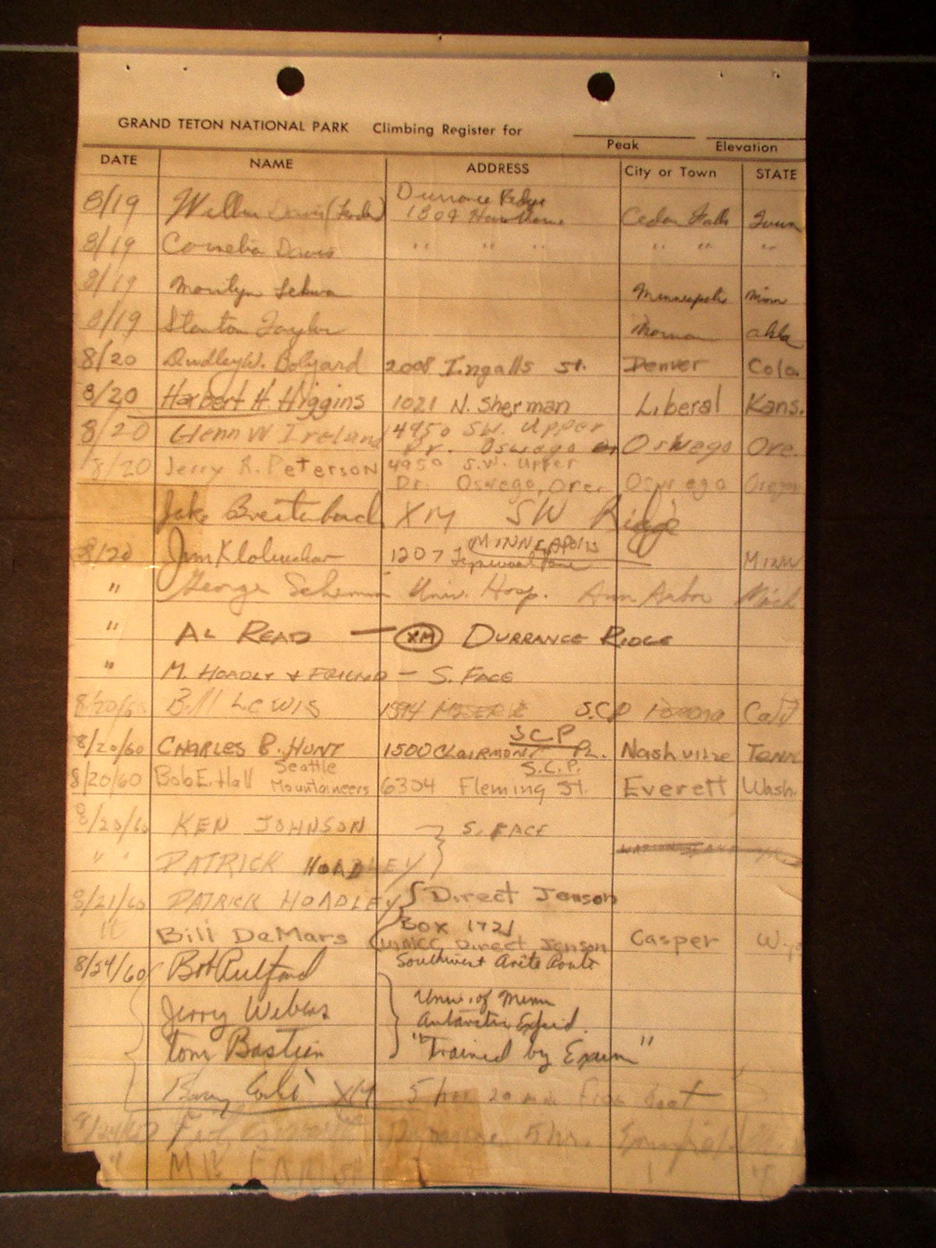 GRAND TETON NATIONAL PARK Climbing Register for
Peak Elevation
DATE NAME ADDRESS City or Town STATE
Durrance Ridge
8/19 Davis (Leader) 1809 Cedar Falls Iowa
8/19 Cornelia Davis " " " " " "
8/19 Marilyn Minneapolis Minn
8/19 Stanton Taylor Norman Okla
8/20 Dudley W. Bolyard 2008 Ingalls St. Denver Colo.
8/20 Herbert H. Higgins 1021 N. Sherman Liberal Kans.
8/20 Glenn W Ireland 14950 SW. Upper
Dr. Oswego Oswego Ore.
8/20 Jerry R. Peterson 4950 S.W. Upper
Dr. Oswego, Ore. Oswego Oregon
Jake Breitenbach XM SW Ridge
MINNEAPOLIS
8/20 Jim Klobuchar 1207 MINN
" George Univ. Hosp. Ann Arbor Mich
" AL READ — XM DURRANCE RIDGE
" M. HOADLY & FRIEND — S. FACE
8/20/60 Bill LEWIS S.C.P Calif
S.C.P.
8/20/60 CHARLES B. HUNT 1500 CLAIRMONT PL. Nashville TENN
Seattle S.C.P.
8/20/60 Bob E. Hall Mountaineers 6304 Fleming St. Everett Wash.
8/20/60 KEN JOHNSON S. FACE
" " PATRICK HOADLEY
8/21/60 PATRICK HOADLEY Direct Jenson
Box 1721
" Bill DeMars Direct Jenson Casper Wyo
8/24/60 Bob Southwest Arete Route
Jerry Univ. of Minn
Antarctic Exped.
Tom Bastien "Trained by Exum"
XM 5 hrs 20 min from boat
8/24/60 5 hrs.
"